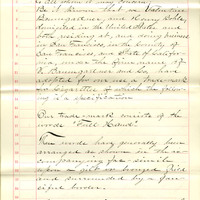 to all whom it may concern:
Be it known that we, Valentine
Baumgartner and Henry
in the United States and
both residing at, and doing business
in San Francisco, in the County of
San Francisco, and State of Califor-
nia, under the firm name, of
V. Baumgartner and Co, have
adopted for our use a Trademark
for Cigarettes of which the follow-
ing is a specification.
Our trade mark consists of the
words "Full Hand".
These words have generally been
arranged as shown in the ac-
companying fac-simile
upon a gilt or bronzed field
and surrounded by a fan-
ciful border.